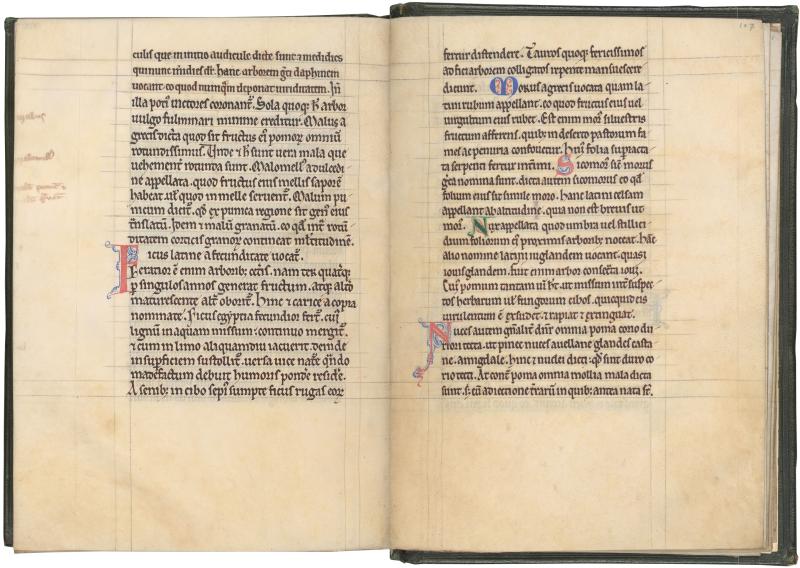 culis que in initio audicule dicte sunt & medidies
quinune midies dr̄. hanc arborem greci daphenem
uocant. eo quod nunquam deponat uiriditatem. Jn
illa poti uictores coronant̄. Sola quoq; h̄ arbor
uulgo fulminari minime creditur. Malus a
grecis dicta quod sit fructus ei pomor̄ omniū
rotundissimus. Unde & h̄ sunt uera mala que
uehement̄ rotunda sunt. Malomell̄ a dulcedi
ne appellata. quod fructus eius mellis saporē
habeat. ul̄ quod in melle seruent̄. Malum pu
nicum dicint̄. qđ ex punica regione sit gen̄ eius
t̄nslatū. Jdem & malū granatū. eo qđ int̄ rotū
ditatem corticis granor̄ contineat m̄ltitudinē.
Ficus latine a fecunditate uocat̄.
Feratior ē enim arborib; cet̄is. nam ter quat̄q;
p̄ singulos annos generat fructum. atq; alt̄o
maturescente alt̄ oborit̄. Hinc & carice a copia
nominate. Ficus egyptia fecundior fert̄. cui
lignū in aquam missum: continuo mergit̄.
& cum in limo aliquamdiu iacuerit. deinde
in sup̄ficiem sustollit̄. uersa uice nat̄e. qn̄do
madefactum debuit humoris ponde residē.
A senib; in cibo sepi sumpte ficus rugas eor̄
107
fertur distendere. Tauros quoq; fericissimos
ad fici arborem colligatos repente mansuescere
dicunt. Morus a grecis uocata quam la
tini rubum appellant. eo quod fructus eius uel
uirgultum eius rubet. Est enim mor̄ siluestris
fructum afferens. quib; in deserto pastorum fa
mes ac penuria confouetur. Hui folia sup̄iacta
ta serpenti fertur int̄imi. Sicomor̄ sic̄ morus
greca nomina sunt. dicta autem sicomorus eo qđ
folium eius sit simile moro. hanc latini celsam
appellant ab altitudine. quia non est breuis ut
mor̄. Nux appellata quod umbra uel stilli
dium foliorum ei proximis arborib; noceat. Hāc
alio nomine latini iuglandem uocant. quasi
iouis glandem. fuit enim arbor consecrata ioui.
Cui pomum tantam uī ht̄. ut missum int̄ suspec
tos herbarum ul̄ fungorum cibos. quicquid eis
uirulentum ē exsudet. rapiat & extinguat.
Nuces autem gn̄alit̄ dn̄r omnia poma corio du
riori tecta. ut pinee nuces auellane glandes casta
nee. amigdale. hinc & nuclei dicti. qđ sint duro co
rio tecti. At cont̄ poma omnia mollia mala dicta
sunt. s; cū adiectione t̄rarū in quib; antea nata st̄.